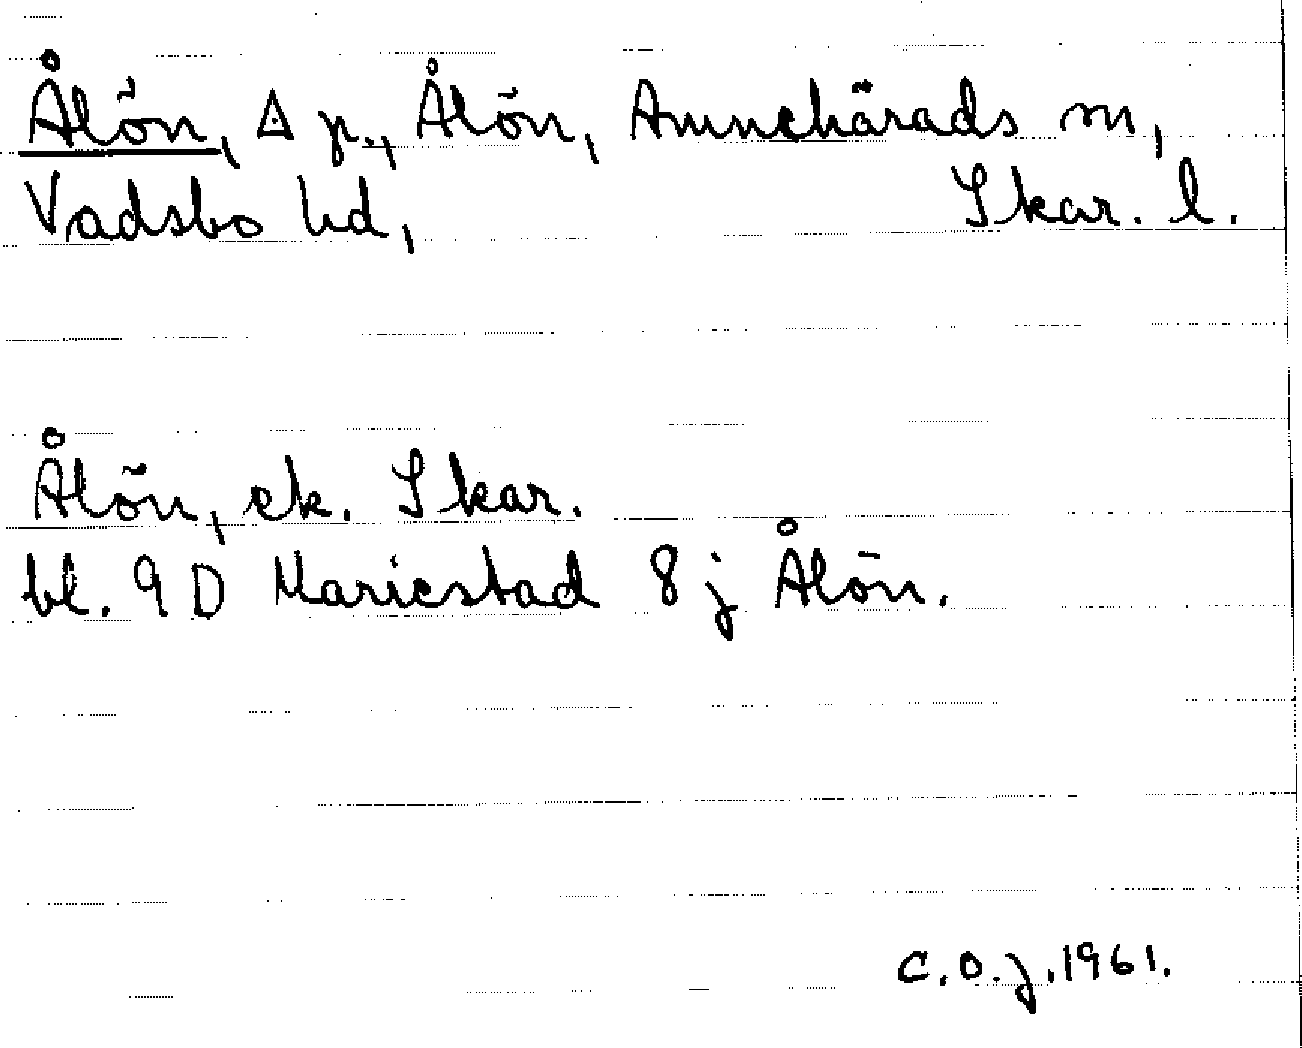 Ålön, △ p., Ålön, Amnehärads sn,
Vadsbo hd, Skar. l.
Ålön, ek. Skar.
bl. 9 D Mariestad 8 j Ålön.
C.O.J. 1961.